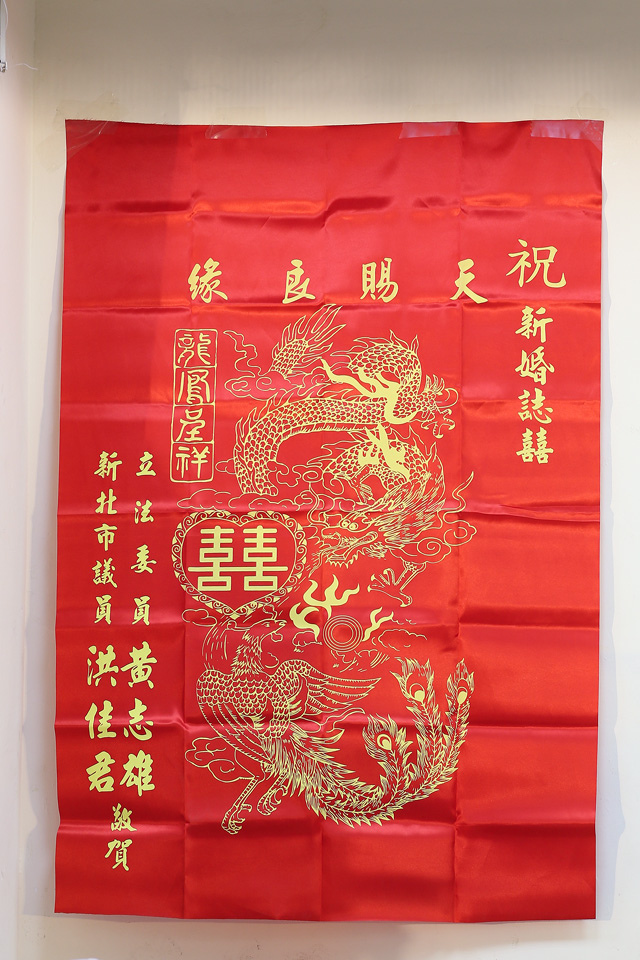 祝
新婚誌囍
天賜良緣
龍鳳呈祥
囍
立法委員 黃志雄
新北市議員 洪佳君
敬賀